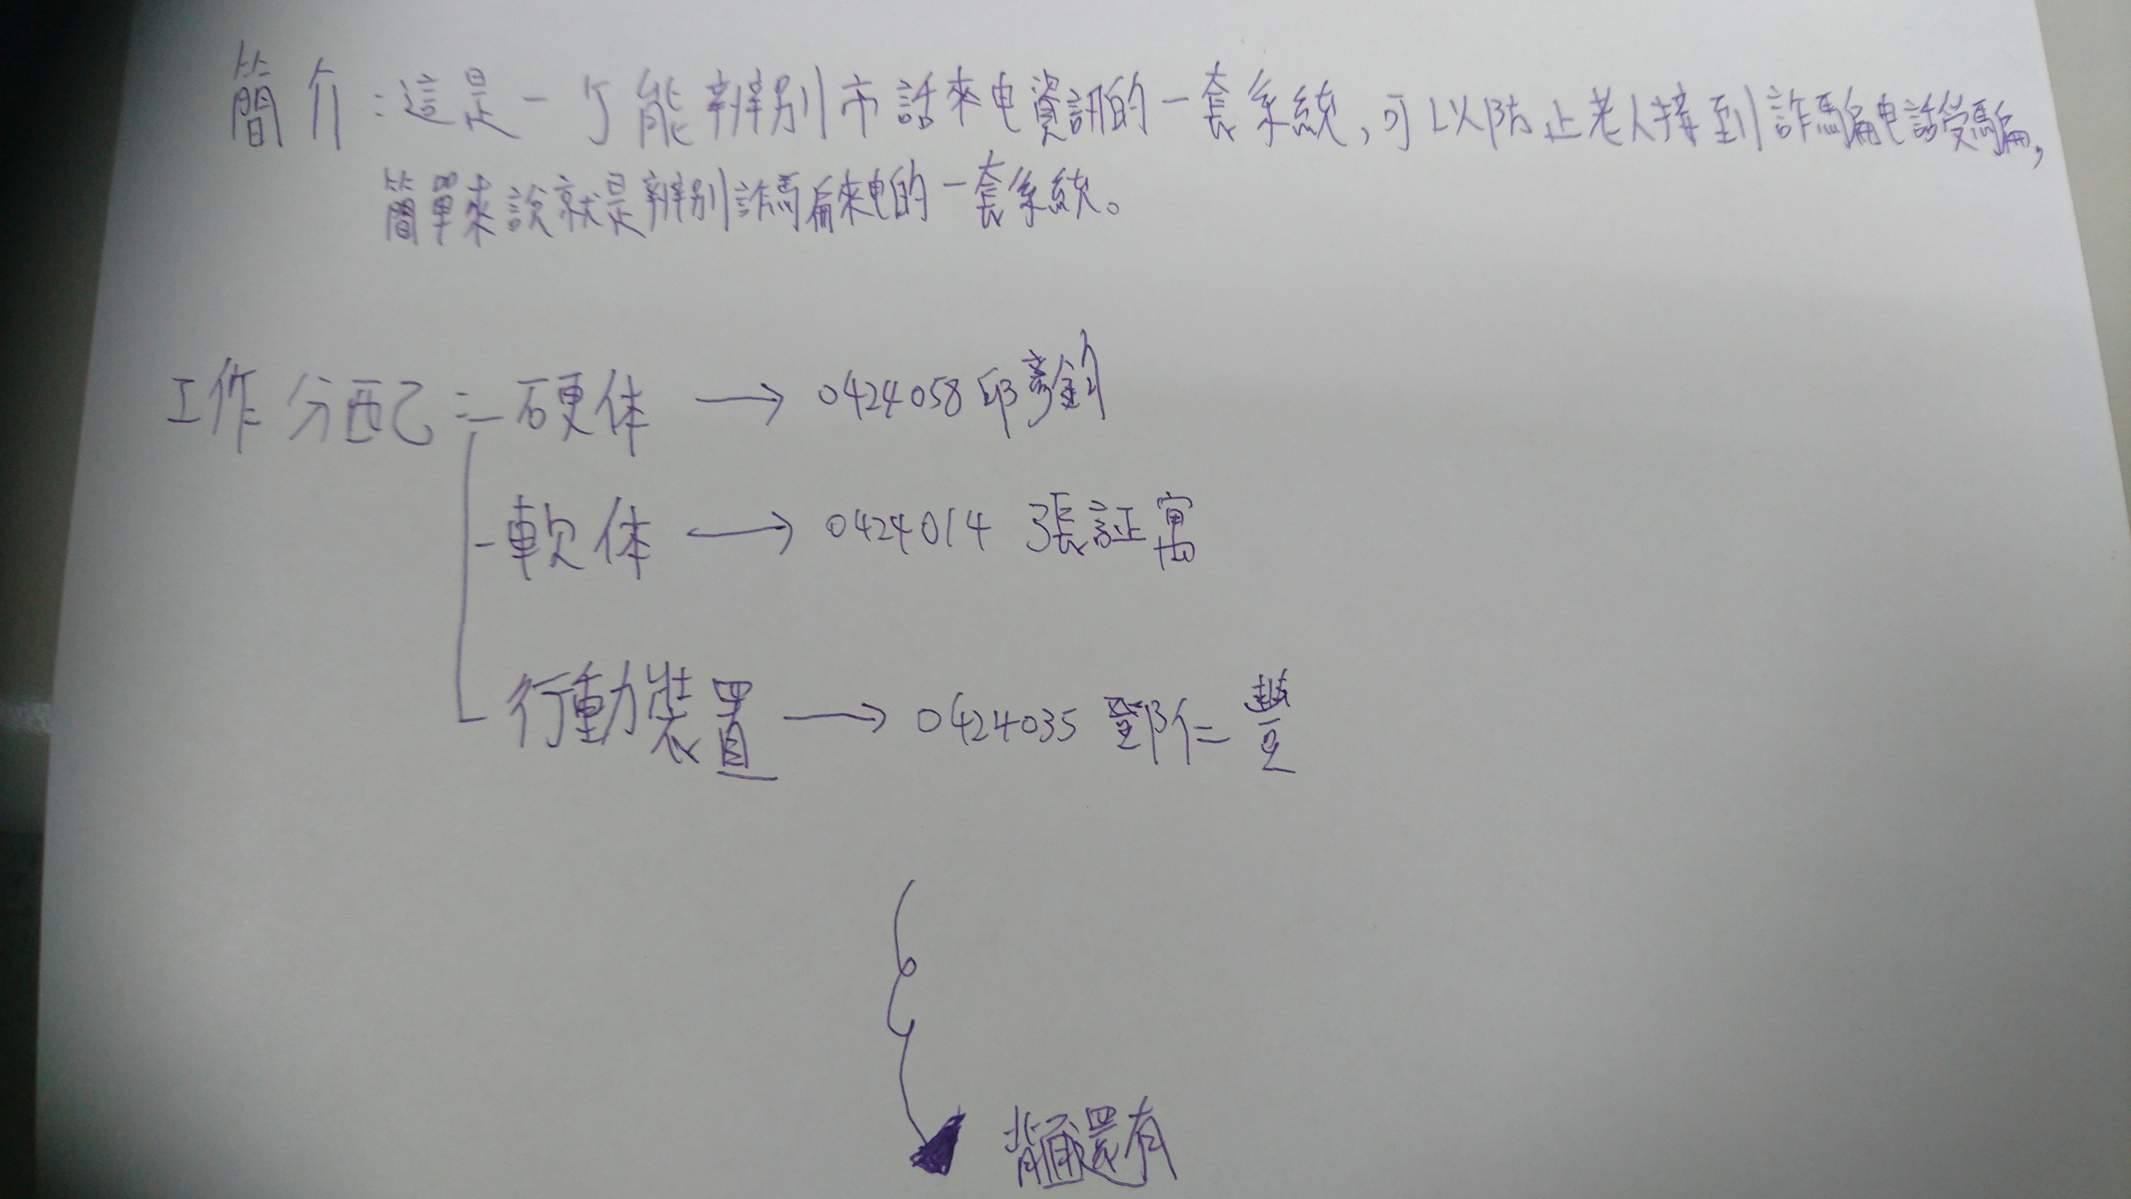 簡介：這是一个能辨別市話來电資訊的一套系統，可以防止老人接到詐騙电話受騙，
簡單來說就是辨別詐騙來电的一套系統。
工作分配：硬体 → 0424058 邱彥釗
軟体 → 0424014 張証寓
行動裝置 → 0424035 鄧仁
背面還有